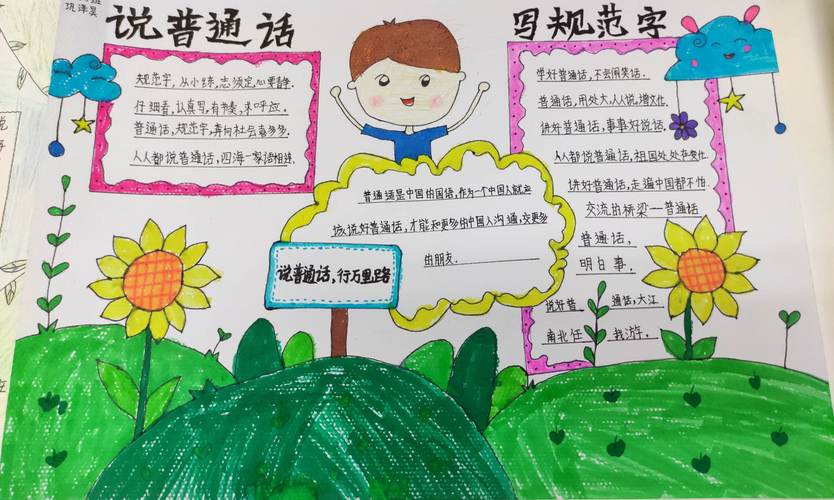 说普通话
写规范字
规范字,从小练,志须定,心要静.
仔细看,认真写,有书奏,求呼应.
普通话,规范字,奔向社会喜多多.
人人都说普通话,四海一家语相连.
普通话是中国的国语,作为一个中国人就应
该说好普通话,才能和更多的中国人沟通,交更多
的朋友.
说普通话,行万里路
学好普通话,不会闹笑话.
普通话,用处大,人人说,增文化.
讲好普通话,事事好说话.
人人都说普通话,祖国处处在变化.
讲好普通话,走遍中国都不怕.
交流的桥梁——普通话
普通话,
明白事.
说好普通话,大江
南北任我游.